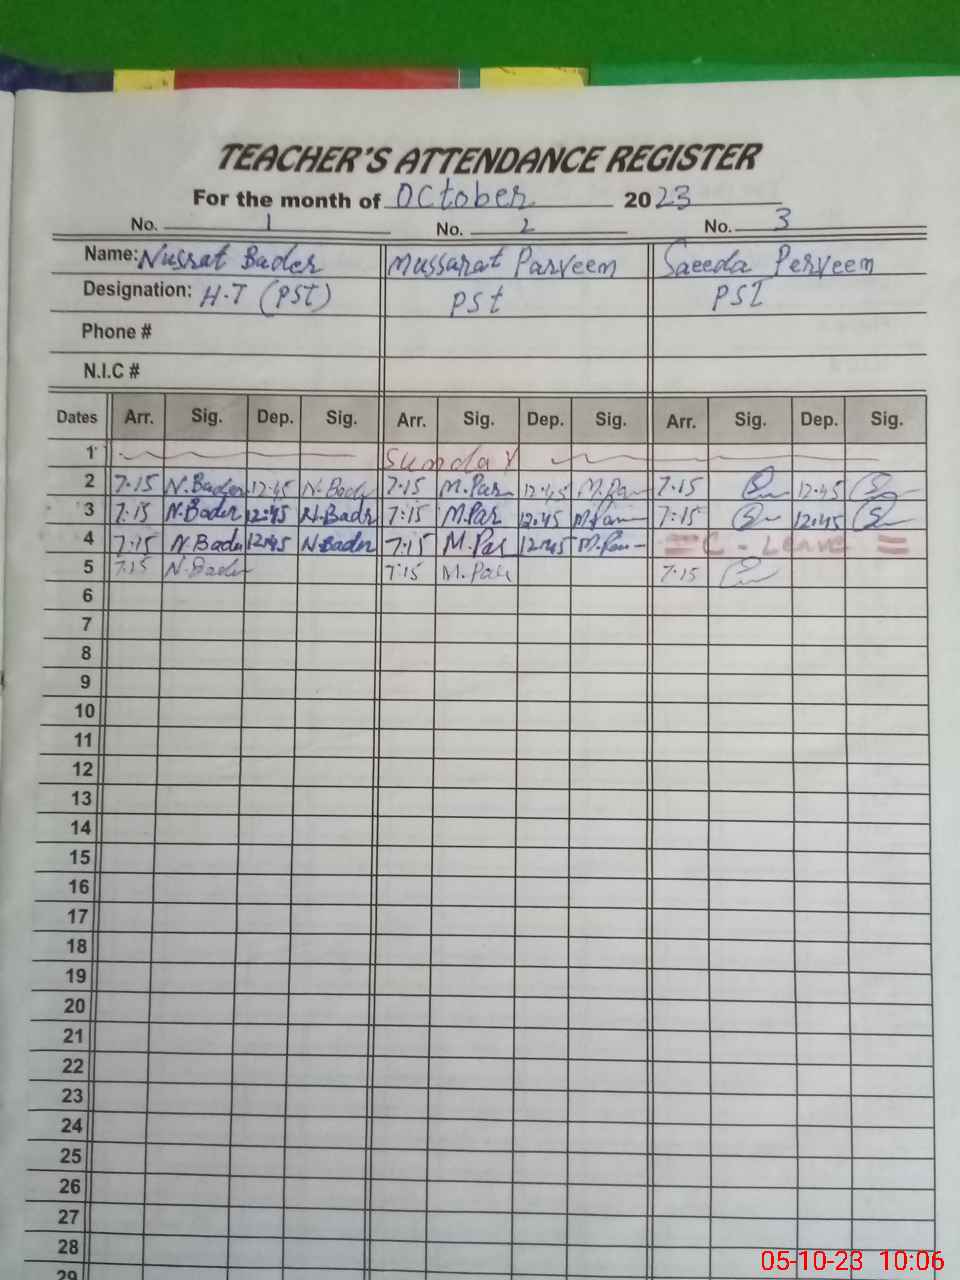 TEACHER'S ATTENDANCE REGISTER
For the month of October 2023
No. 1 No. 2 No. 3
Name: Nusrat Bader Mussarat Parveen Saeeda Perveen
Designation: H.T (PST) PSt PST
Phone #
N.I.C #
Dates Arr. Sig. Dep. Sig. Arr. Sig. Dep. Sig. Arr. Sig. Dep. Sig.
1 Sunday
2 7.15 N.Bader 12:45 N.Bader 7:15 M.Par 12:45 M.Par 7:15 12:45
3 7:15 N.Bader 12:45 N.Badr 7:15 M.Par 12:45 M.Par 7:15 12:45
4 7:15 N.Bader 12:45 N.Bader 7:15 M.Par 12:45 M.Par C - Leave
5 7:15 N.Bader 7:15 M.Par 7:15
6
7
8
9
10
11
12
13
14
15
16
17
18
19
20
21
22
23
24
25
26
27
28
29
05-10-23 10:06